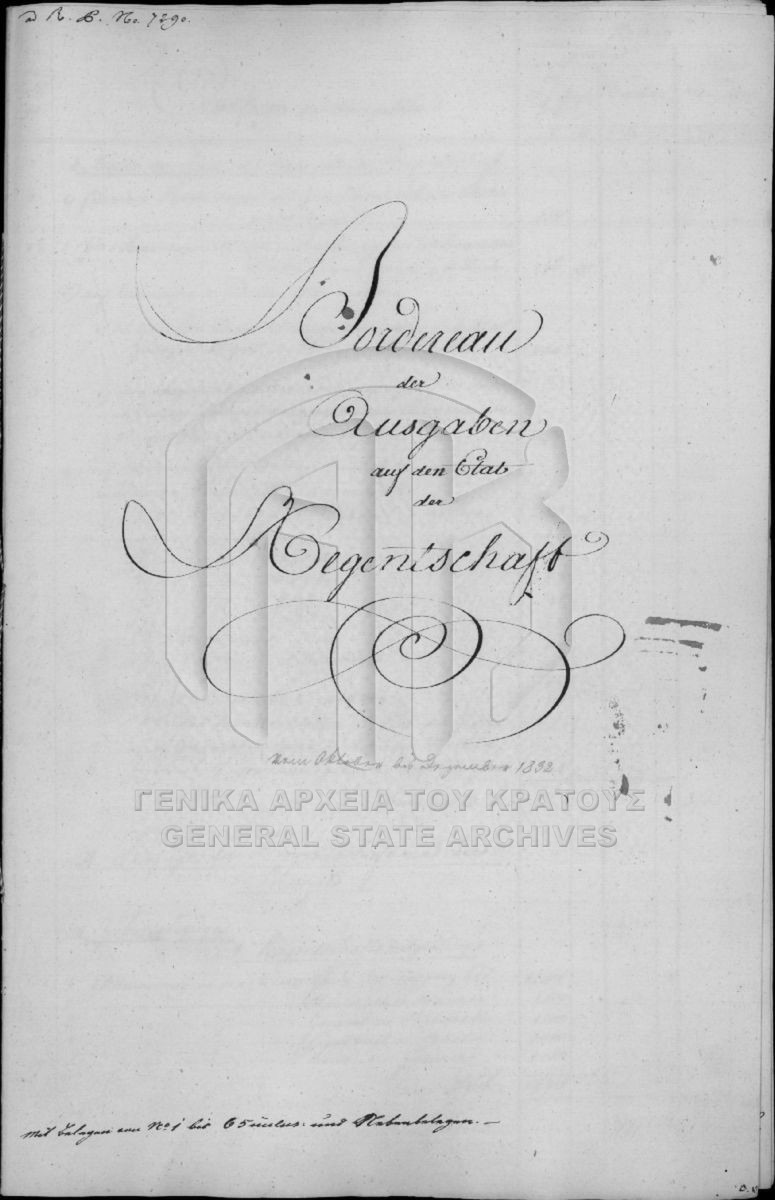 R. P. No. 7290.
Bordereau
der
Ausgaben
auf den Etat
der
Regentschaft
vom Oktober bis Dezember 1832
ΓΕΝΙΚΑ ΑΡΧΕΙΑ ΤΟΥ ΚΡΑΤΟΥΣ
GENERAL STATE ARCHIVES
Mit Belegen von No 1 bis 65 inclus: und Nebenbelegen.